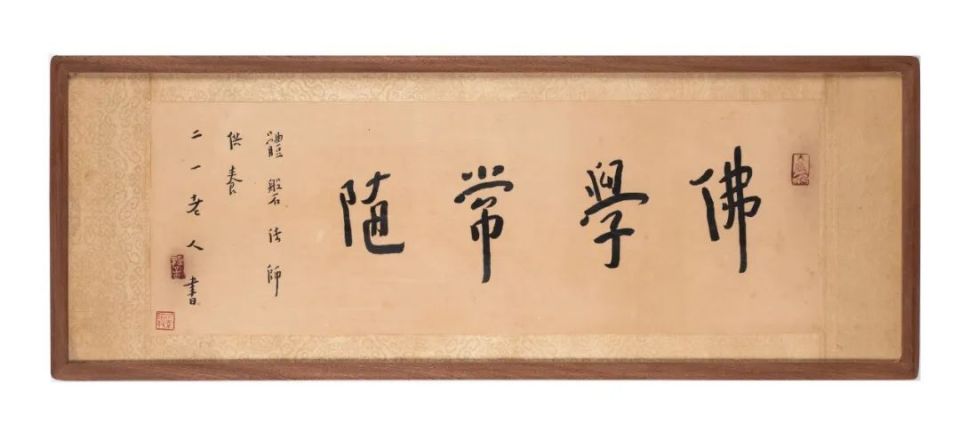 佛學常随
體磐法師
供養
二一老人書